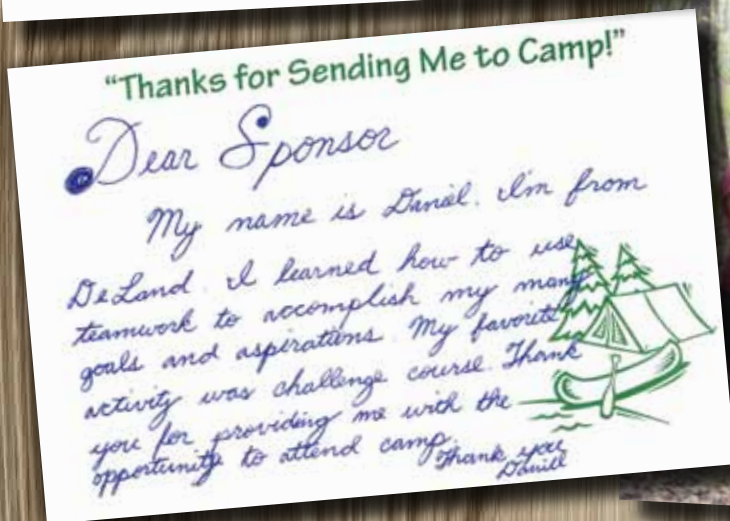 "Thanks for Sending Me to Camp!"
Dear Sponsor
My name is Daniel. I'm from
DeLand. I learned how to use
teamwork to accomplish my many
goals and aspirations. My favorite
activity was challenge course. Thank
you for providing me with the
opportunity to attend camp.
Thank you
Daniel